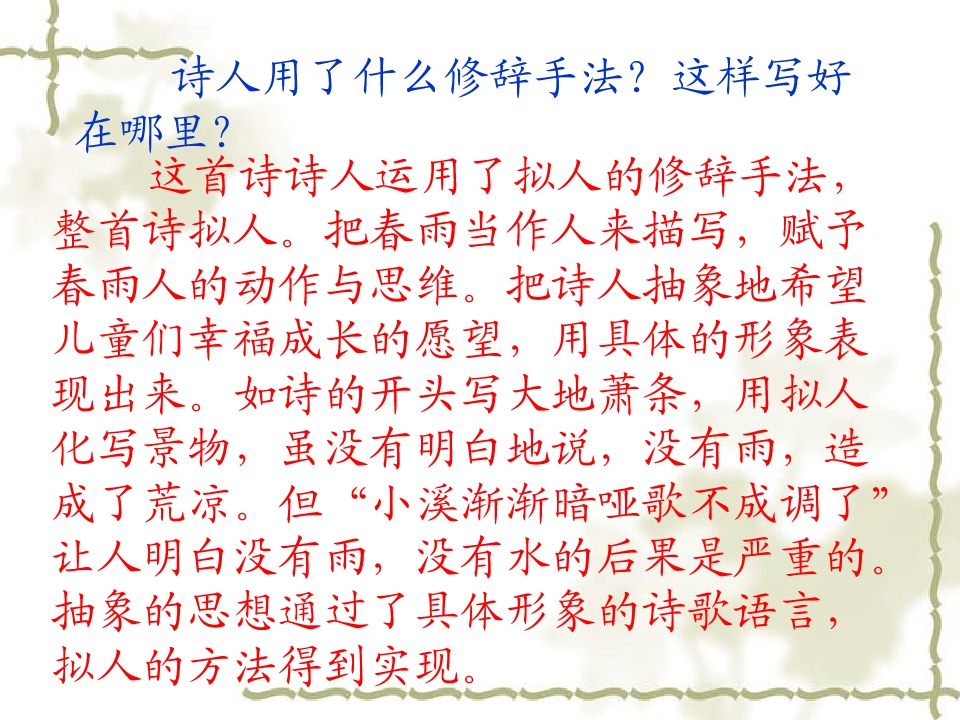 诗人用了什么修辞手法？这样写好
在哪里？
这首诗诗人运用了拟人的修辞手法，
整首诗拟人。把春雨当作人来描写，赋予
春雨人的动作与思维。把诗人抽象地希望
儿童们幸福成长的愿望，用具体的形象表
现出来。如诗的开头写大地萧条，用拟人
化写景物，虽没有明白地说，没有雨，造
成了荒凉。但“小溪渐渐暗哑歌不成调了”
让人明白没有雨，没有水的后果是严重的。
抽象的思想通过了具体形象的诗歌语言，
拟人的方法得到实现。